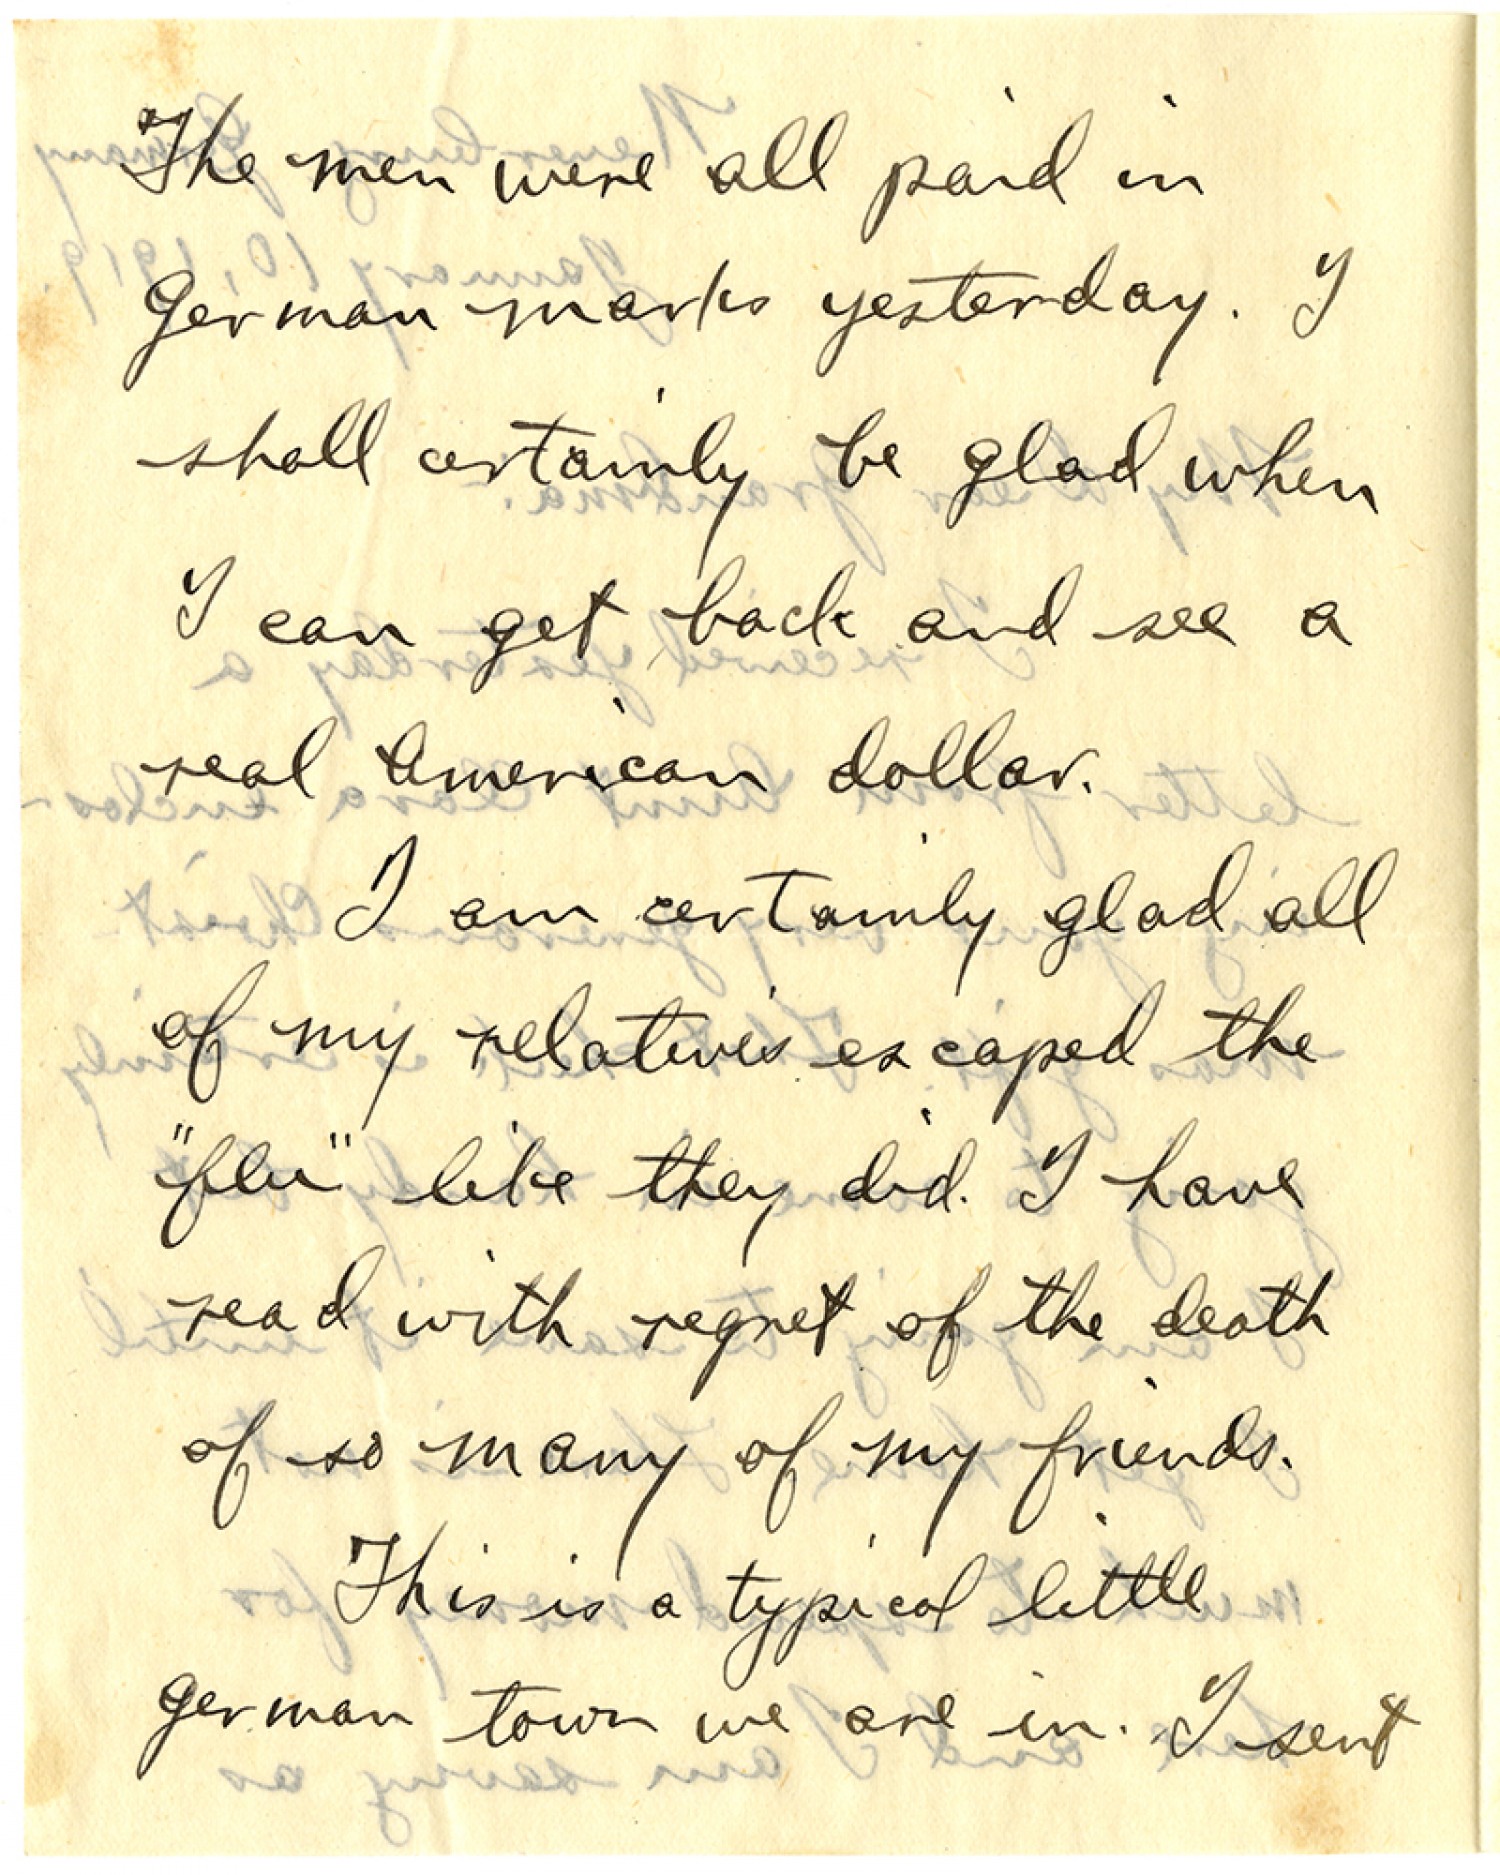 The men were all paid in
German marks yesterday. I
shall certainly be glad when
I can get back and see a
real American dollar.
I am certainly glad all
of my relatives escaped the
"flu" like they did. I have
read with regret of the death
of so many of my friends.
This is a typical little
German town we are in. I sent